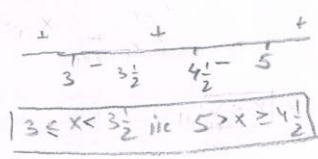 + + +
3 - 3½ 4½ - 5
3 ≤ x < 3½ או 5 > x ≥ 4½